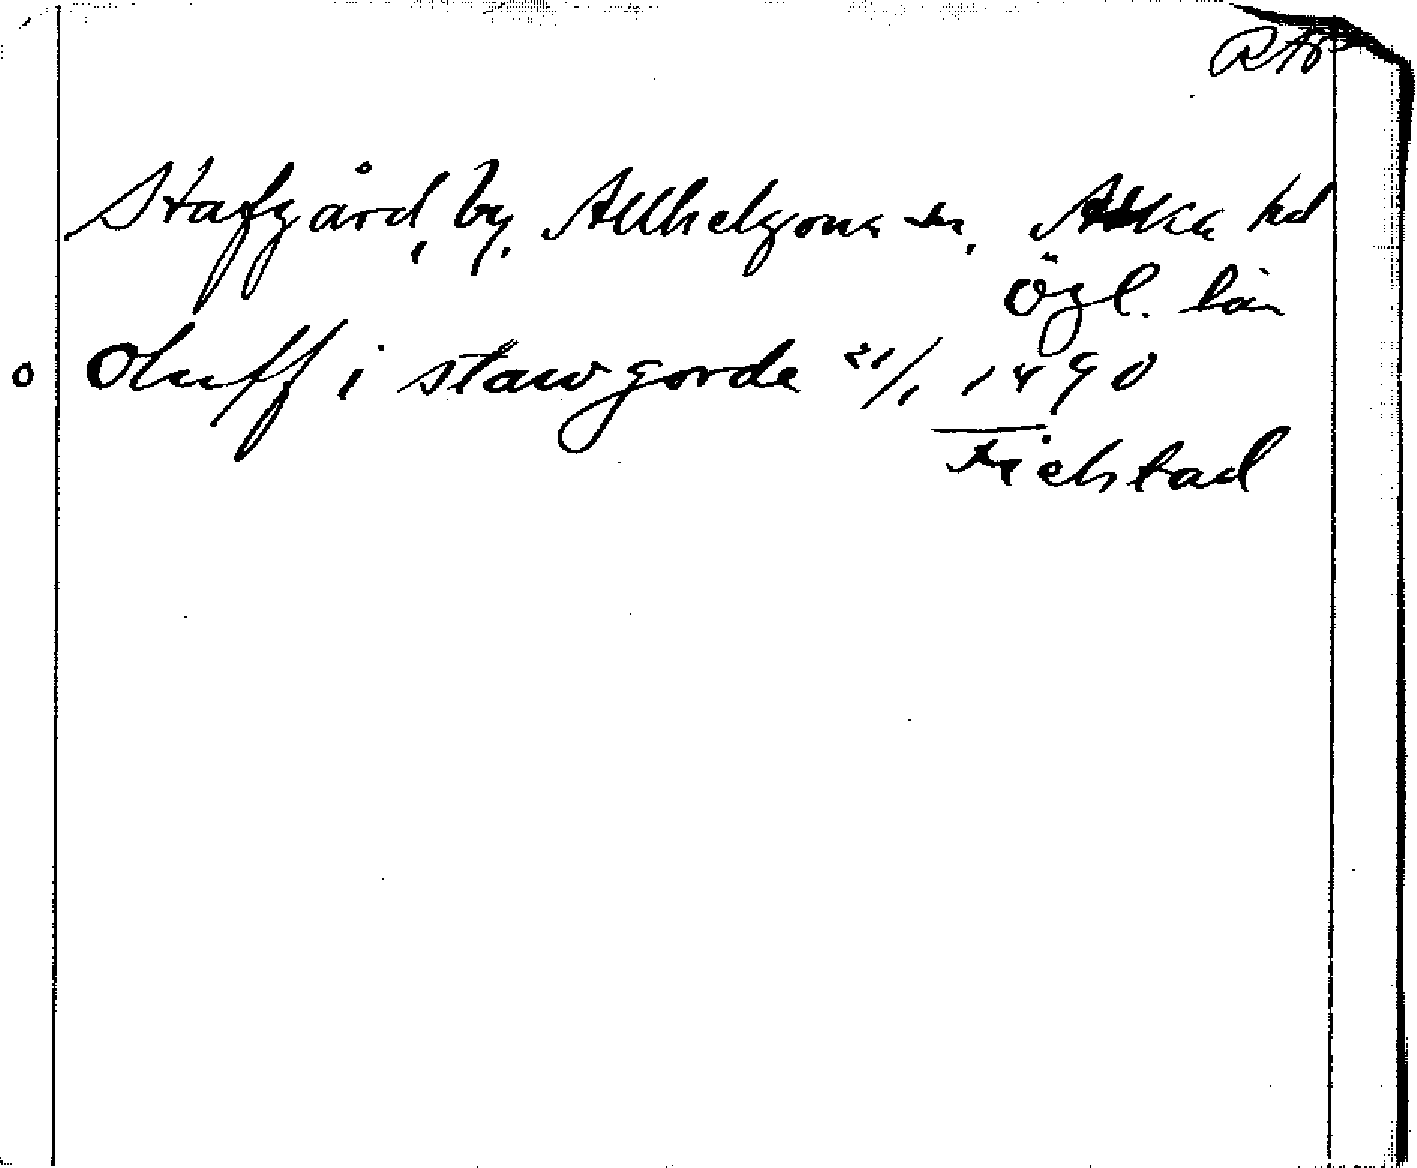 RAp
Stafgård, by, Allhelgona sn, Aska hd
Ögl. län
o Oluff i stawgorde 21/1 1490
Fiestad